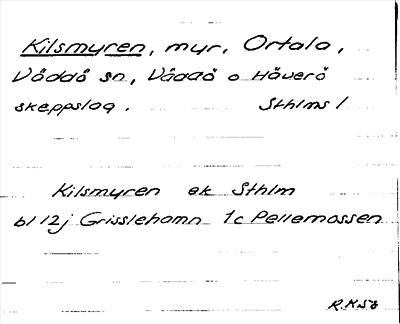 Kilsmyren, myr, Ortala,
Väddö sn, Väddö o Häverö
skeppslag. Sthlms l
Kilsmyren ek Sthlm
bl 12j Grisslehamn 1c Pellemossen